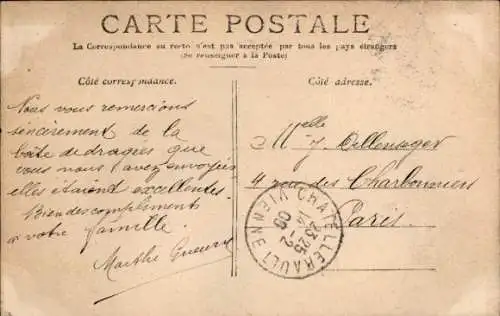 CARTE POSTALE
La Correspondance au recto n'est pas acceptée par tous les pays étrangers
(Se renseigner à la Poste)
Côté correspondance.
Côté adresse.
Nous vous remercions
sincirement de la
boîte de dragées que
vous nous avez envoyées
elles étaient excellentes.
Bien des compliments
à votre famille.
Marthe
Melle J.
4 rue des Charbonniers
Paris.
CHATELLERAULT VIENNE
23 25
14 - 2
09